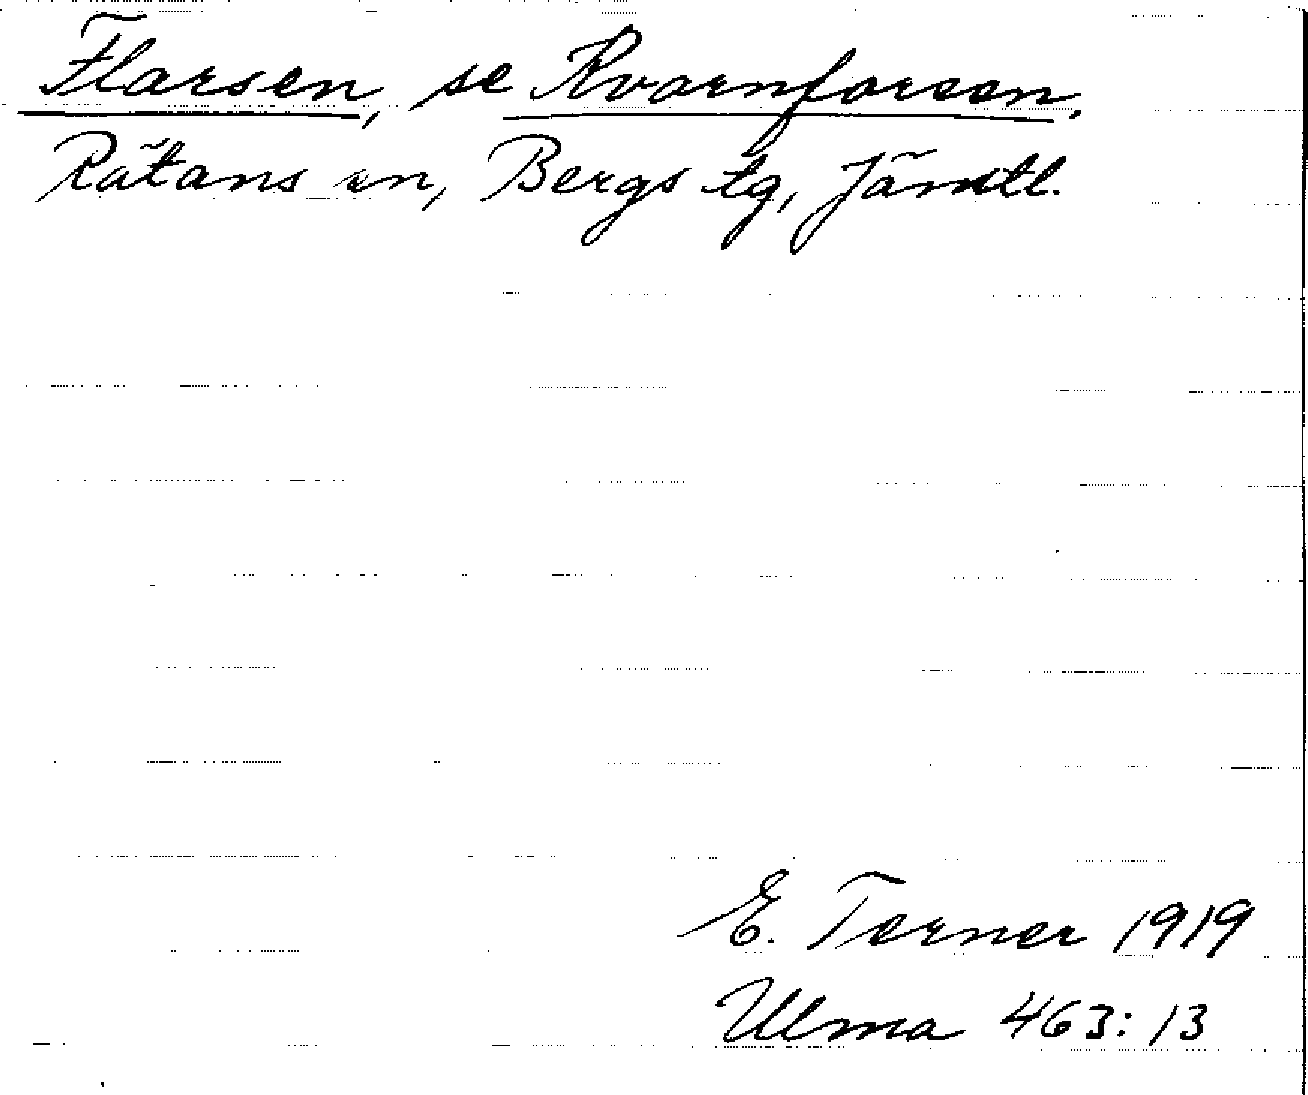 Flarsen, se Kvarnforsen.
Rätans sn, Bergs tg, Jämtl.
E. Terner 1919
Ulma 463:13